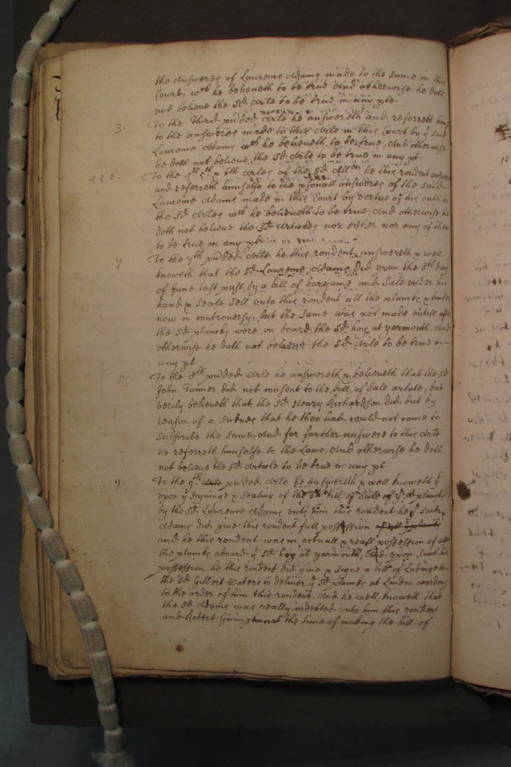 the answeres of Laurence Adams made to the same in this
Court, wch he beleeveth to be true And otherwise he doth
not beleeve the sd Arlє to be true in any pte
3 To the Third p'ided Arle he answereth and referreth him
to the answeres made to this Arle in this Court by ye said
Laurence Adams wch he beleeveth to be true, and otherwise
he doth not beleeve the sd Arle to be true in any pt
4.5.6. To the 4th 5th & 6th Arles of the sd Allon he this rendent
and referreth himselfe to the p'sonall answeres of the said
Laurence Adams made in this Court by vertue of his oath to
the sd Arles wch he beleeveth to be true, And otherwise he
doth not beleeve the sd Articles nor either nor any of them
to be true in any pt
7 To the 7th p'ided Arle he this rendent answereth & well
knoweth that the sd Laurence Adams did upon the 8th day
of June last past, by a bill of bargaine and Sale under his
hand & Seale sell unto this rendent all the plants
now in controversy, but the same was not made untill after
the sd plants were on board the sd hoy at yarmouth And
otherwise he doth not beleeve the sd Arle to be true in
any pt
8 To the 8th p'ided Arle he answereth & beleeveth that the sd
John Tanner did not consent to the bill of Sale arlate, but
verily beleeveth that the sd Henry Richardson did but by
reason of a that he then had could not come to
subscribe the same, And for farther answere to this Arle
he referreth himselfe to the Lawe, And otherwise he doth
not beleeve the sd Article to be true in any pt
9 To the 9th p'ided Arle he answereth & well knoweth yt
upon ye signinge & sealing of the sd bill of Sale of ye sd plants
by the sd Laurence Adams unto him this rendent he ye said
Adams did give this rendent full possession
and he this rendent was in actuall & reall possession of all
the plants aboard ye sd hoy at yarmouth, And upon such his
possession he this rendent did give & signe a bill of Ladinge to
the sd Gilbert Waters to deliver ye sd plants at London
to the order of him this rendent, And he well knoweth that
the sd Adams was really indebted unto him this rendent
and Robert at the time of making the bill of